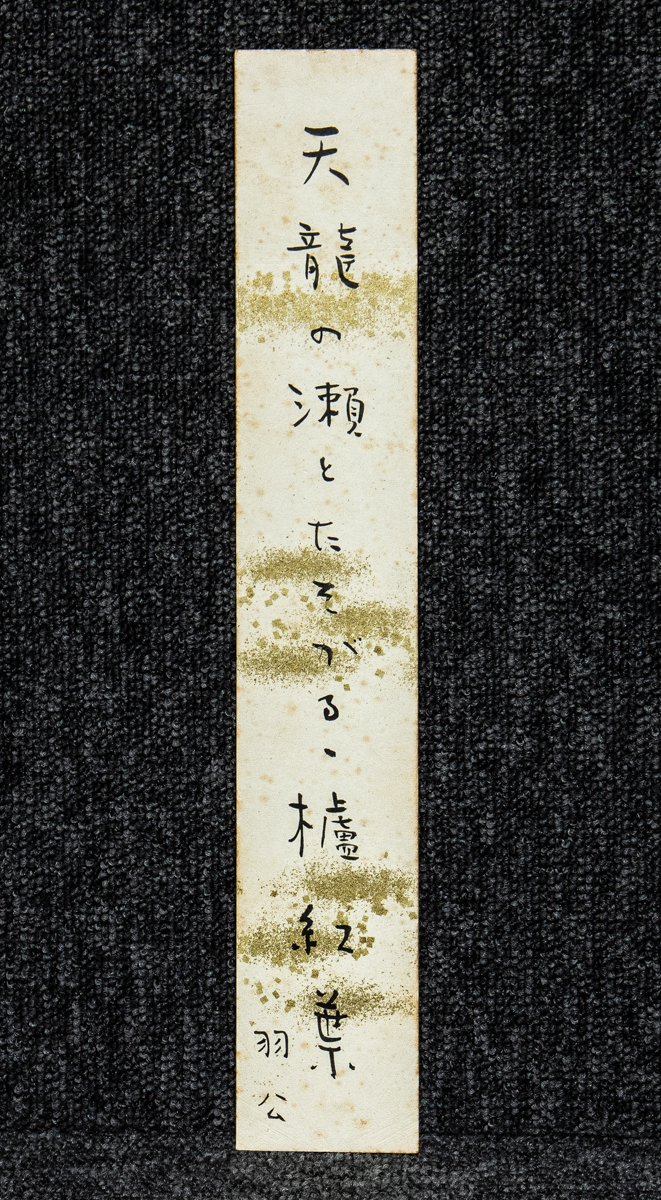 天龍の瀬とたそがるゝ櫨紅葉
羽公